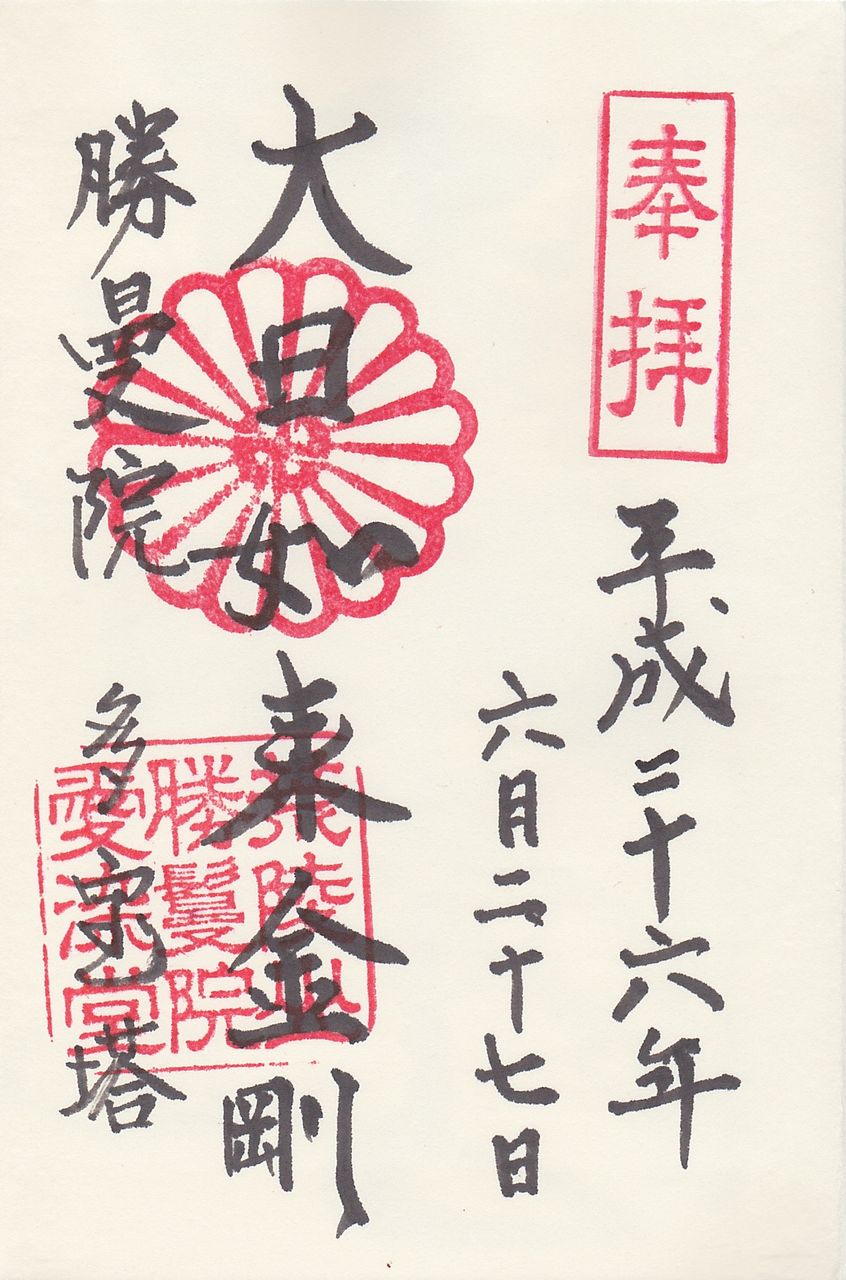 奉拝
平成二十六年
六月二十七日
大日如来金剛
勝曼院 多宝塔
荒陵山
勝鬘院
愛染堂